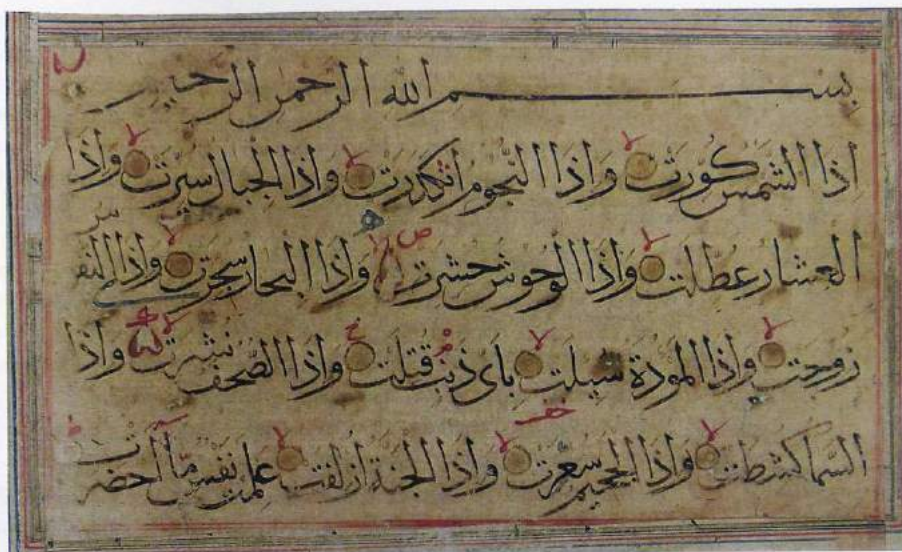 بسم الله الرحمن الرحيم
اذا الشمس كُوّرت وَاذا النّجوم انكدرَت وَاذا الجبال سيّرت وَاذا
العشار عطّلت وَاذا الوحوش حشرت وَاذا البحار سجّرت وَاذا النفو س
زوجت وَاذا الموْدة سيلت باَى ذنب قتلت وَاذا الصّحف نشرت وَاذا
السّما كشطت وَاذا الجحيم سعّرت وَاذا الجنة ازلفت علمت نفس مّا احضرت